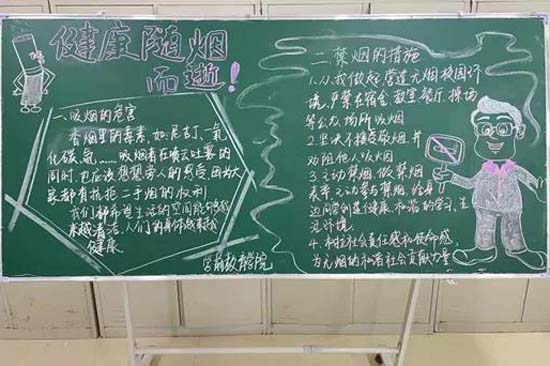 健康随烟
而逝！
一、吸烟的危害
香烟里的毒素，如尼古丁、一氧
化碳、氰……吸烟者在喷云吐雾的
同时，也应该想想旁人的感受，因为大
家都有抗拒二手烟的权利
我们都希望生活的空间能够越
来越清洁，人们的身体越来越
健康。
学前教育学院
二、禁烟的措施
1.从我做起，营造无烟校园环
境，严禁在宿舍、教室、餐厅、操场
等公众场所吸烟
2.坚决不接受敬烟，并
劝阻他人吸烟
3.主动禁烟，做禁烟
表率，主动参与禁烟，给身
边同学创造健康、和谐的学习、生
活环境。
4.树社会责任感和使命感，
为无烟的和谐社会贡献力量